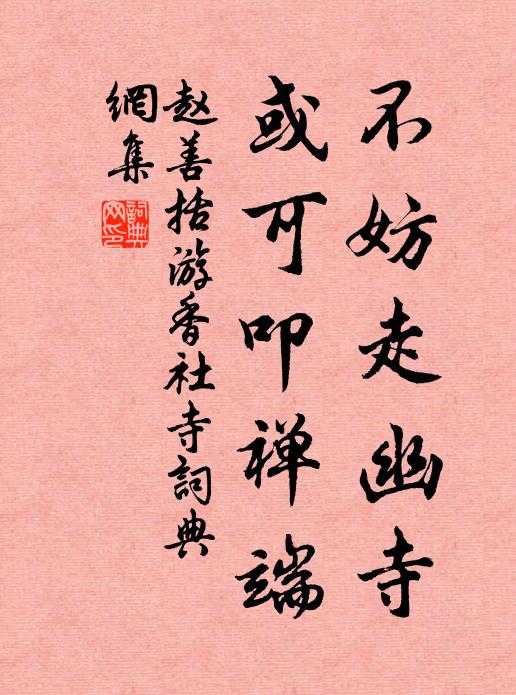 不妨走幽寺
或可叩禅端
赵善括游香社寺詞典
網集
詞典網印